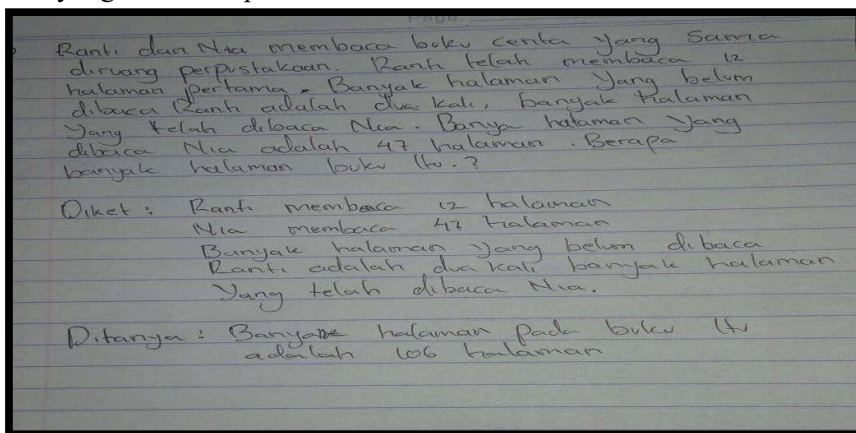 Ranti dan Nia membaca buku cerita yang sama
diruang perpustakaan. Ranti telah membaca 12
halaman pertama. Banyak halaman yang belum
dibaca Ranti adalah dua kali, banyak halaman
yang telah dibaca Nia. Banya halaman yang
dibaca Nia adalah 47 halaman. Berapa
banyak halaman buku itu.?
Diket : Ranti membaca 12 halaman
Nia membaca 47 halaman
Banyak halaman yang belum dibaca
Ranti adalah dua kali banyak halaman
yang telah dibaca Nia.
Ditanya : Banyak halaman pada buku itu
adalah 106 halaman